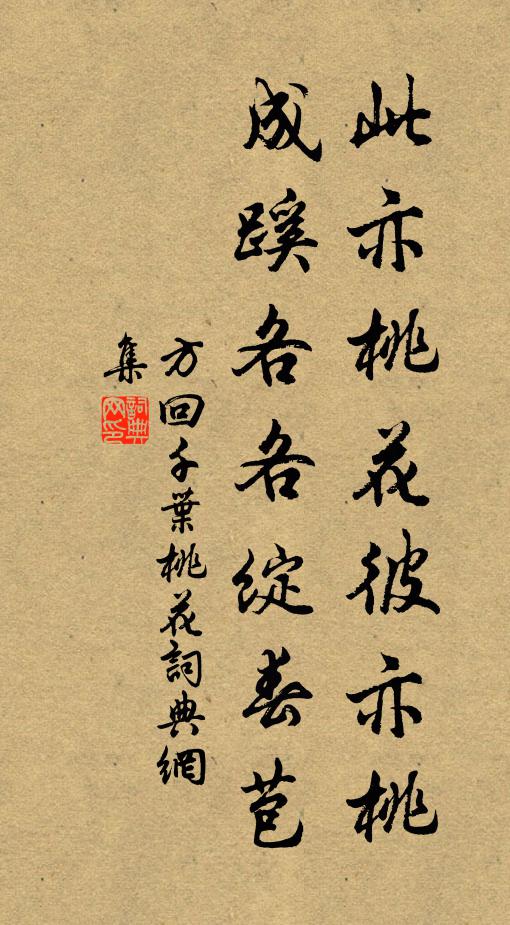 此亦桃花彼亦桃
成蹊各各綻春苞
方回千葉桃花詞典網
集
詞典
网印